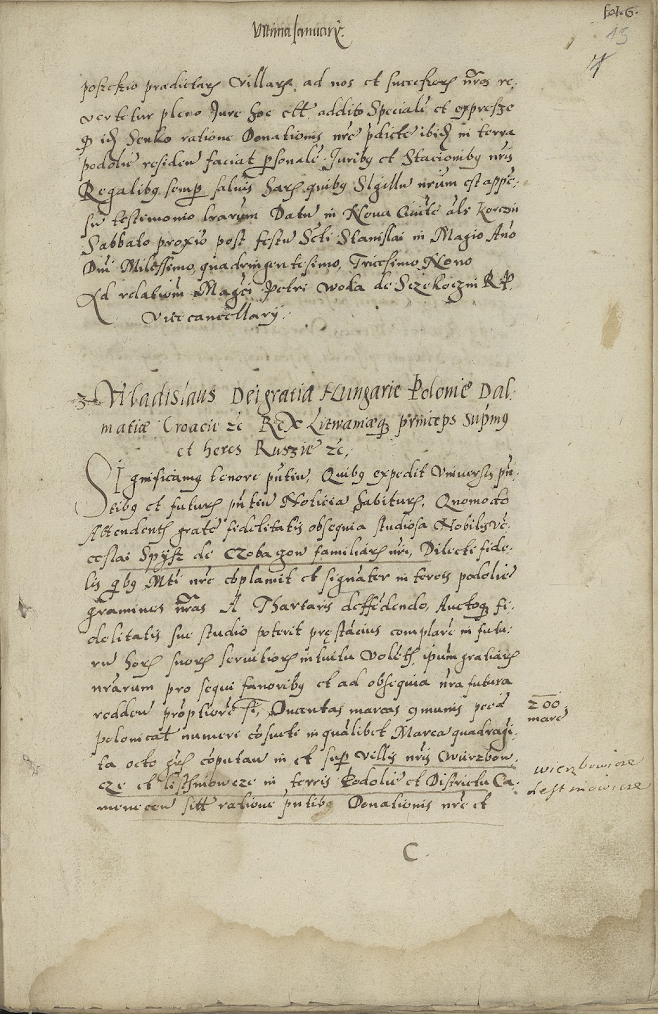 Fol. 6.
Ultima Januarij.
13
14
possessio predictarum villarum ad nos et successores nros re-
vertetur pleno Jure hoc est addito Speciali et expresse
q idem Senko ratione Donationis nre pdicte ibidem in terra
podolie residen faciat psonale Juribq et Stacionibq nris
Regalibq semp salvis harum quibq Sigillu nrum est appe-
su testimonio lrarum Datu in Nova Civite als Korczin
Sabbato proxio post festu Scti Stanislai in Magio Ano
Dni Milessimo, quadringentesimo, Tricesimo Nono
Ad relatiom Magci Petri Woda de Sczekoczini R P
Vicecancellarij.
3 Wladislaus Dei gratia Hungarie Polonie Dal-
matiæ Croacie zc Rex Litwaniæq princeps Supmq
et heres Russie zc,
Significamq tenore pntiu, Quibq expedit Universis pn-
tibq et futuris pntiu Noticia habituris, Quomodo
Attendentes grate fidelitatis obsequia studiosa Nobilis We-
ceslai Spysz de Czobaczow familiaris nri, Dilecti fide-
lis qbq Mti nre coplamit et signater in terris podolie
gramines nras A Thartaris deffedendo, Auctoq fi-
delitatis sue studio poterit prestacius complare in futu-
ru horum suorum servitiorum intuitu volentes ipsum gratiarum
nrarum pro sequi favoribq et ad obsequia nra futura
redden proptiore, Ducentas marcas comunis pecunie
polonicat numeri cosueti in qualibet Marca quadragi-
ta octo computan in et sup villis nris Wierzbow-
cze et Listhniowcze in terris Podolie et Districtu Ca-
menecen sitis ratione pntibq Donationis nre et
200
marc
wierzbowiecz
lestniowiecz
C